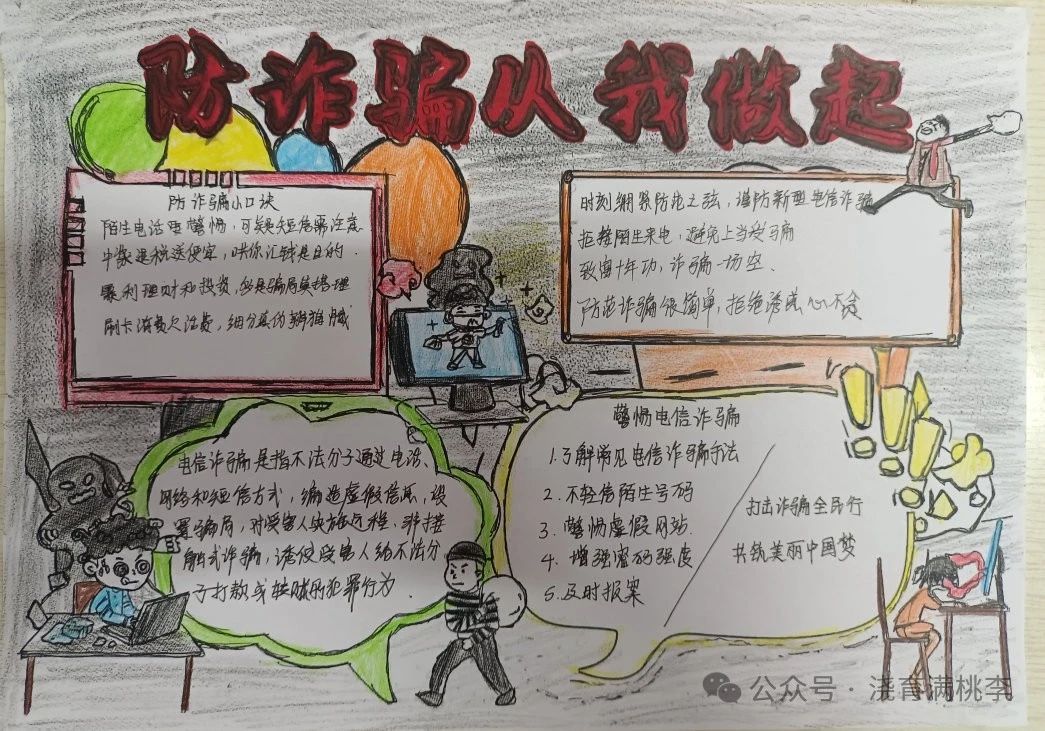 防诈骗从我做起
防诈骗小口诀
陌生电话要警惕，可疑短信需注意
中奖退税送便宜，哄你汇钱是目的．
暴利理财和投资，多是骗局莫搭理
刷卡消费欠话费，细分真伪辨猫腻
时刻绷紧防范之弦，谨防新型电信诈骗
拒接陌生来电，避免上当受骗
致富十年功，诈骗一场空．
防范诈骗很简单，拒绝诱惑心不贪
电信诈骗是指不法分子通过电话、
网络和短信方式，编造虚假信息，设
置骗局，对受害人实施远程、非接
触式诈骗，诱使受害人给不法分
子打款或转账的犯罪行为．
警惕电信诈骗
1.了解常见电信诈骗手法
2.不轻信陌生号码
3.警惕虚假网站.
4.增强密码强度
5.及时报案
打击诈骗全民行
共筑美丽中国梦
公众号·浇育满桃李